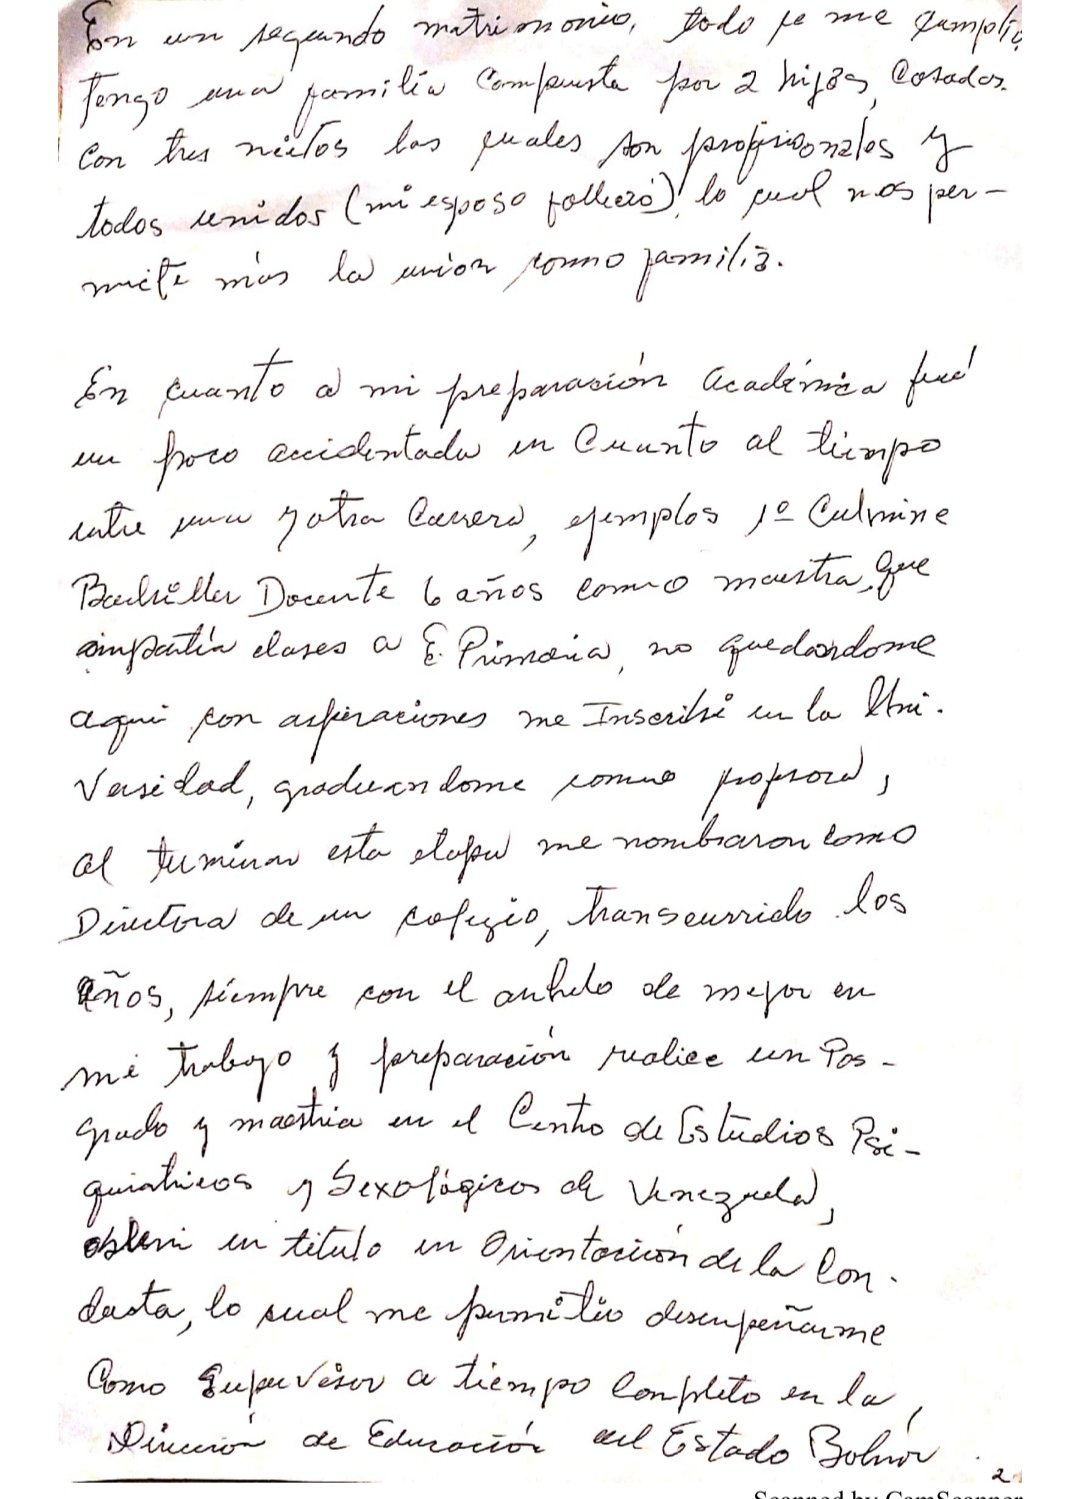 En un segundo matrimonio, todo se me cumplió,
tengo una familia compuesta por 2 hijas, Casadas.
con tres nietos los cuales son profesionales y
todos unidos (mi esposo falleció), lo cual nos per-
mite más la unión como familia.
En cuanto a mi preparación Académica fué
un poco accidentada en Cuanto al tiempo
entre una y otra Carrera, ejemplos 1º Culmine
Bachiller Docente 6 años como maestra, que
impartía clases a E. Primaria, no quedandome
aqui con aspiraciones me Inscribi en la Uni-
versidad, graduandome como profesora,
al terminar esta etapa me nombraron como
Directora de un colegio, transcurrido los
años, siempre con el anhelo de mejor en
mi trabajo y preparación realice un Pos-
grado y maestria en el Centro de Estudios Psi-
quiatricos y Sexológicos de Venezuela,
obtuve un titulo en Orientación de la Con-
ducta, lo cual me permitió desempeñarme
Como Supervisor a tiempo Completo en la
Dirección de Educación del Estado Bolívar
2
Scanned by CamScanner